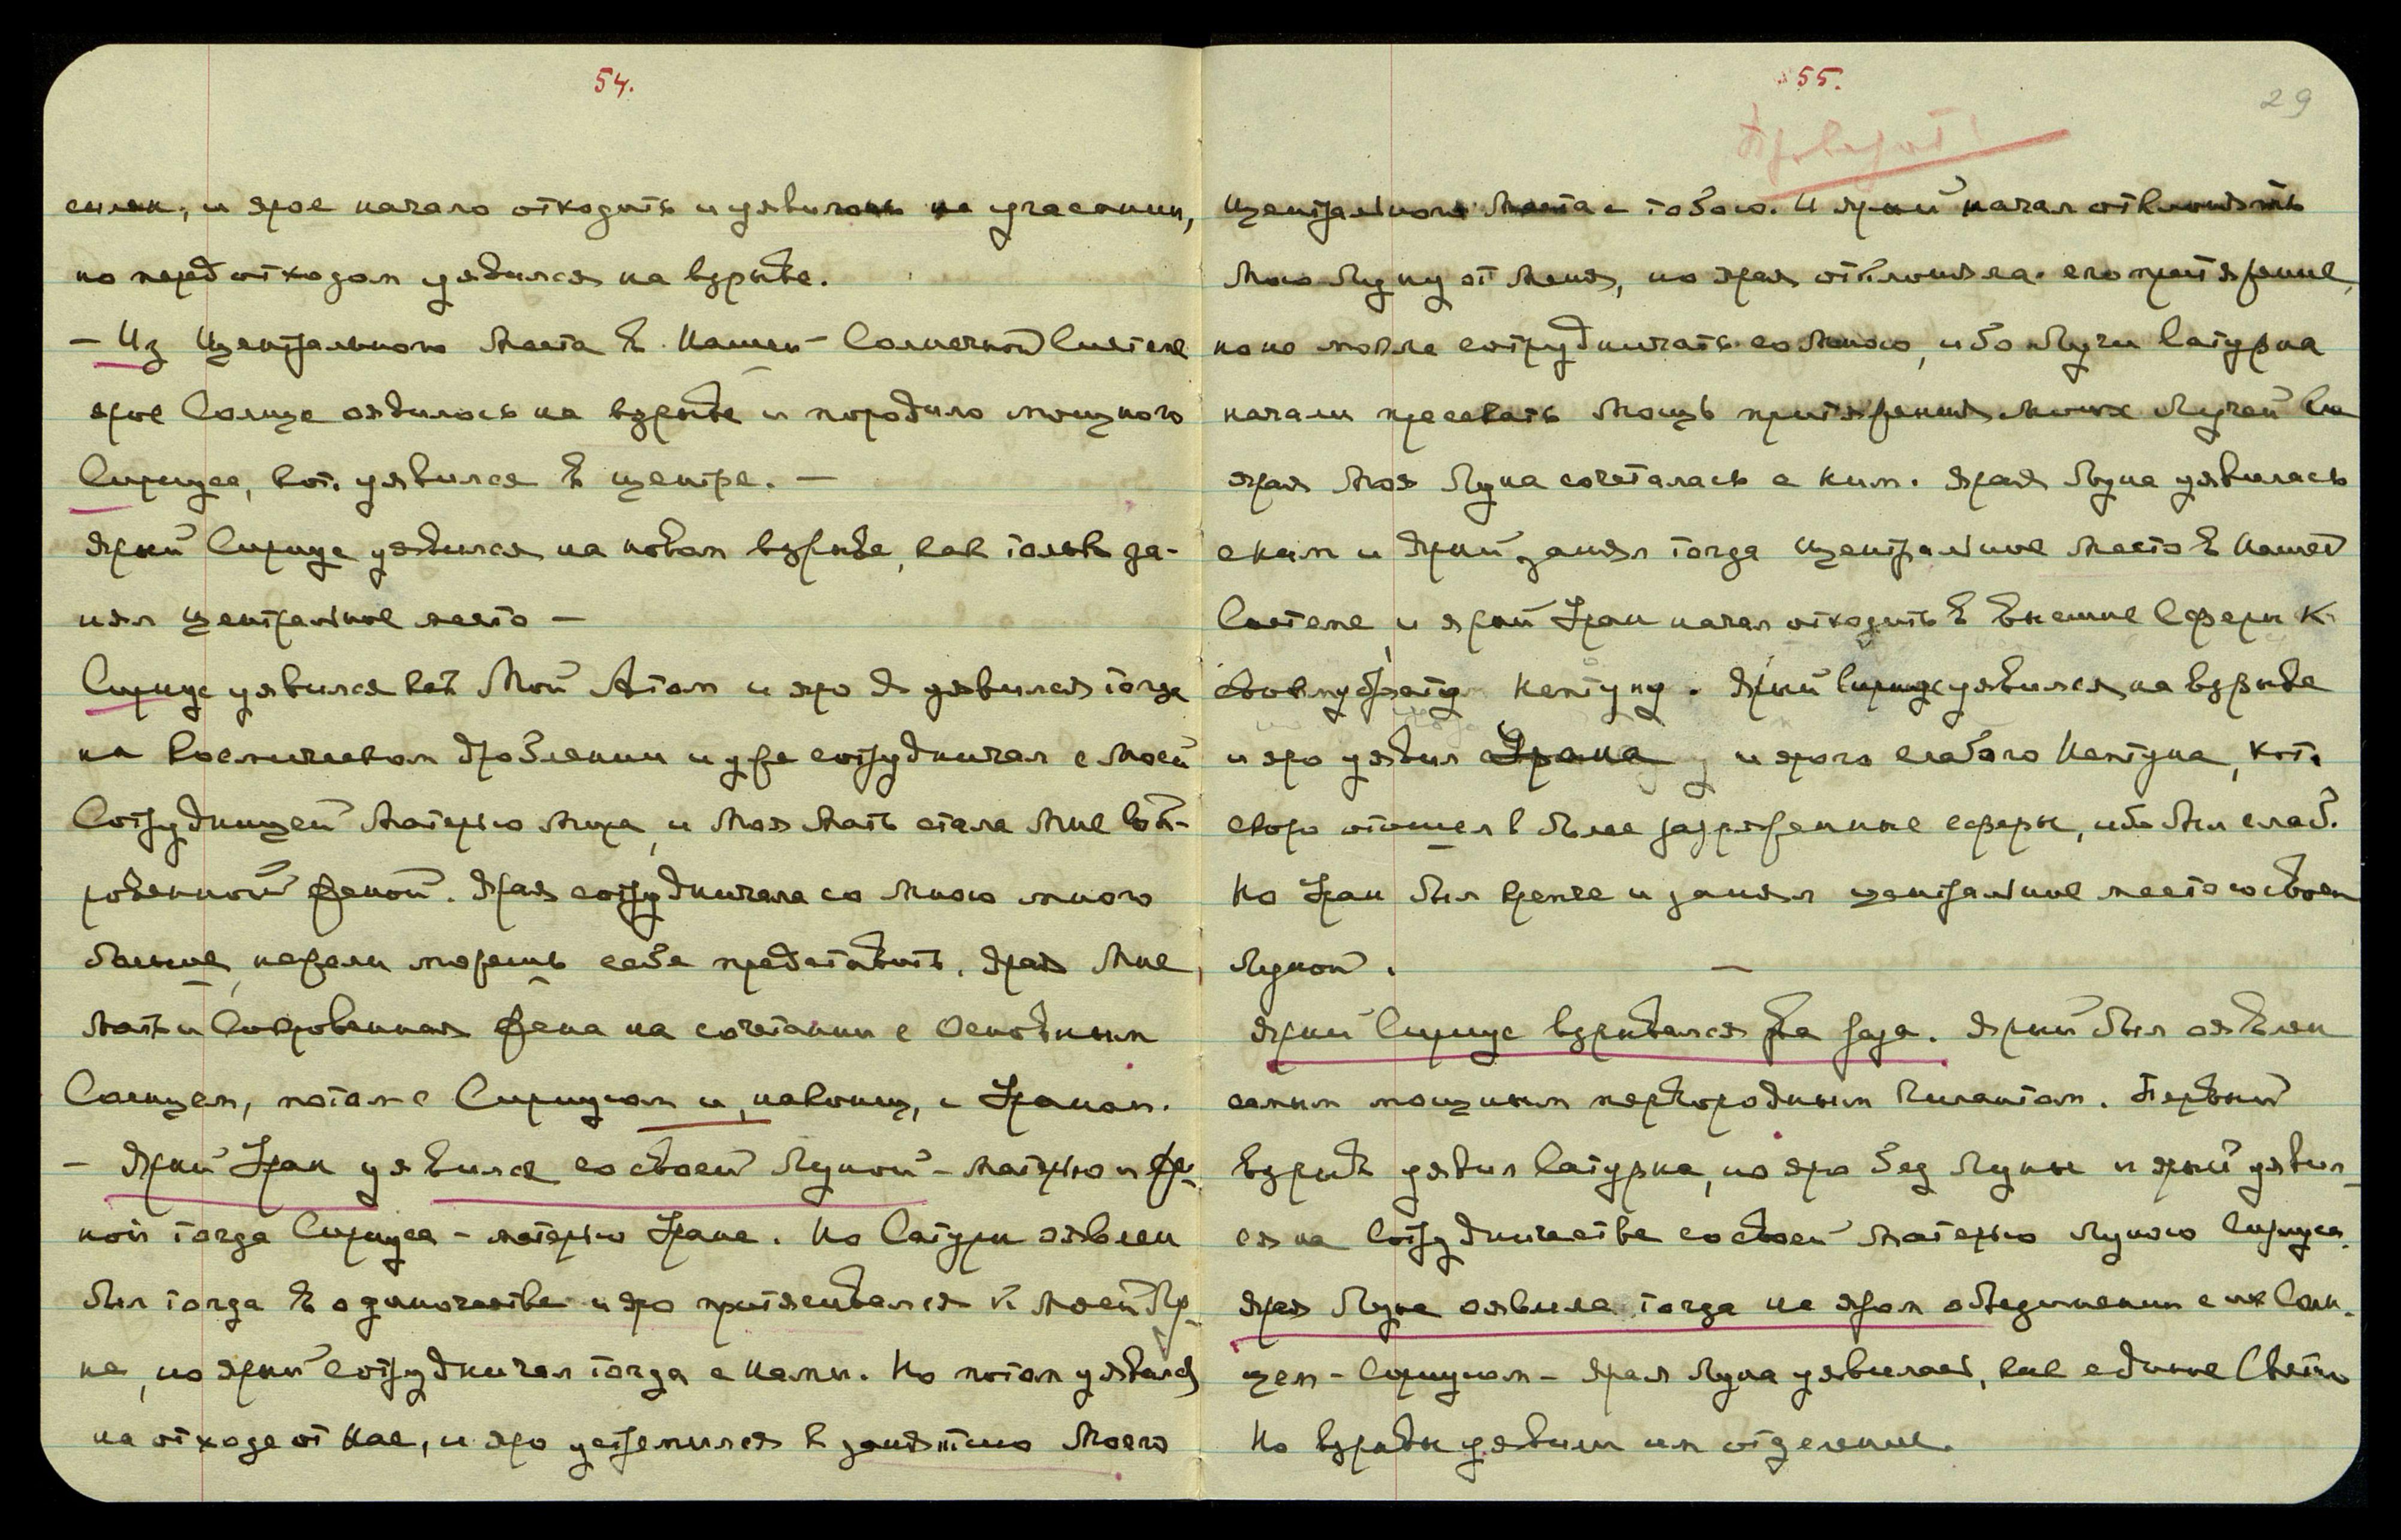 54.
силен, и ярое начало отходить и уявилось на угасании,
но перед отходом уявился на взрыве.
– Из Центрального Места в Нашей Солнечной Системе
ярое Солнце оявилось на взрыве и породило мощного
Сириуса, кот. уявился в центре. –
Ярый Сириус уявился на новом взрыве, как только за-
нял центральное место –
Сириус уявился как Мой Атом и яро Я уявился тогда
на космическом дроблении и уже сотрудничал с Моей
Сотрудницей Матерью Мира, и Моя Мать стала Мне Сок-
ровенной женой. Ярая сотрудничала со Мною много
больше, нежели можешь себе представить. Ярая Мне
Мать и Сокровенная жена на сочетании с Основным
Солнцем, потом с Сириусом и, наконец, с Ураном.
– Ярый Уран уявился со своей Луной – матерью и же-
ной тогда Сириуса – матерью Урана. Но Сатурн оявлен
был тогда в одиночестве и яро притягивался к Моей Лу-
не, но ярый сотрудничал тогда с Нами. Но потом уявился
на отходе от Нас, и яро устремился к занятию Моего
55.
29
Проверить!
Центрального Места с тобою. И ярый начал отклонять
Мою Луну от Меня, но ярая отклоняла его притяжение,
но не могла сотрудничать со Мною, ибо Лучи Сатурна
начали пресекать Мощь притяжения Моих Лучей
ярая Моя Луна сочеталась с ним. Ярая Луна уявилась
с ним и Ярый занял тогда Центральное Место в Нашей
Системе, и ярый Уран начал отходить в Внешние Сферы к
своему брату Нептуну. Ярый Сириус уявился на взрыве
и яро уявил Урана и ярого слабого Нептуна, кот.
скоро отошел в более разряженные сферы, ибо был слаб.
Но Уран был крепче и занял центральное место со своей
Луной. –
Ярый Сириус взрывался два раза. Ярый был оявлен
самым мощным первородным Гигантом. Первый
взрыв уявил Сатурна, но яро без Луны и ярый уявил-
ся на Сотрудничестве со своей Матерью Луною Сириуса.
Ярая Луна оявила тогда на яром объединении с их Солн-
цем – Сириусом – Ярая Луна уявилась, как единое Светило
Но взрывы уявили им отделение.